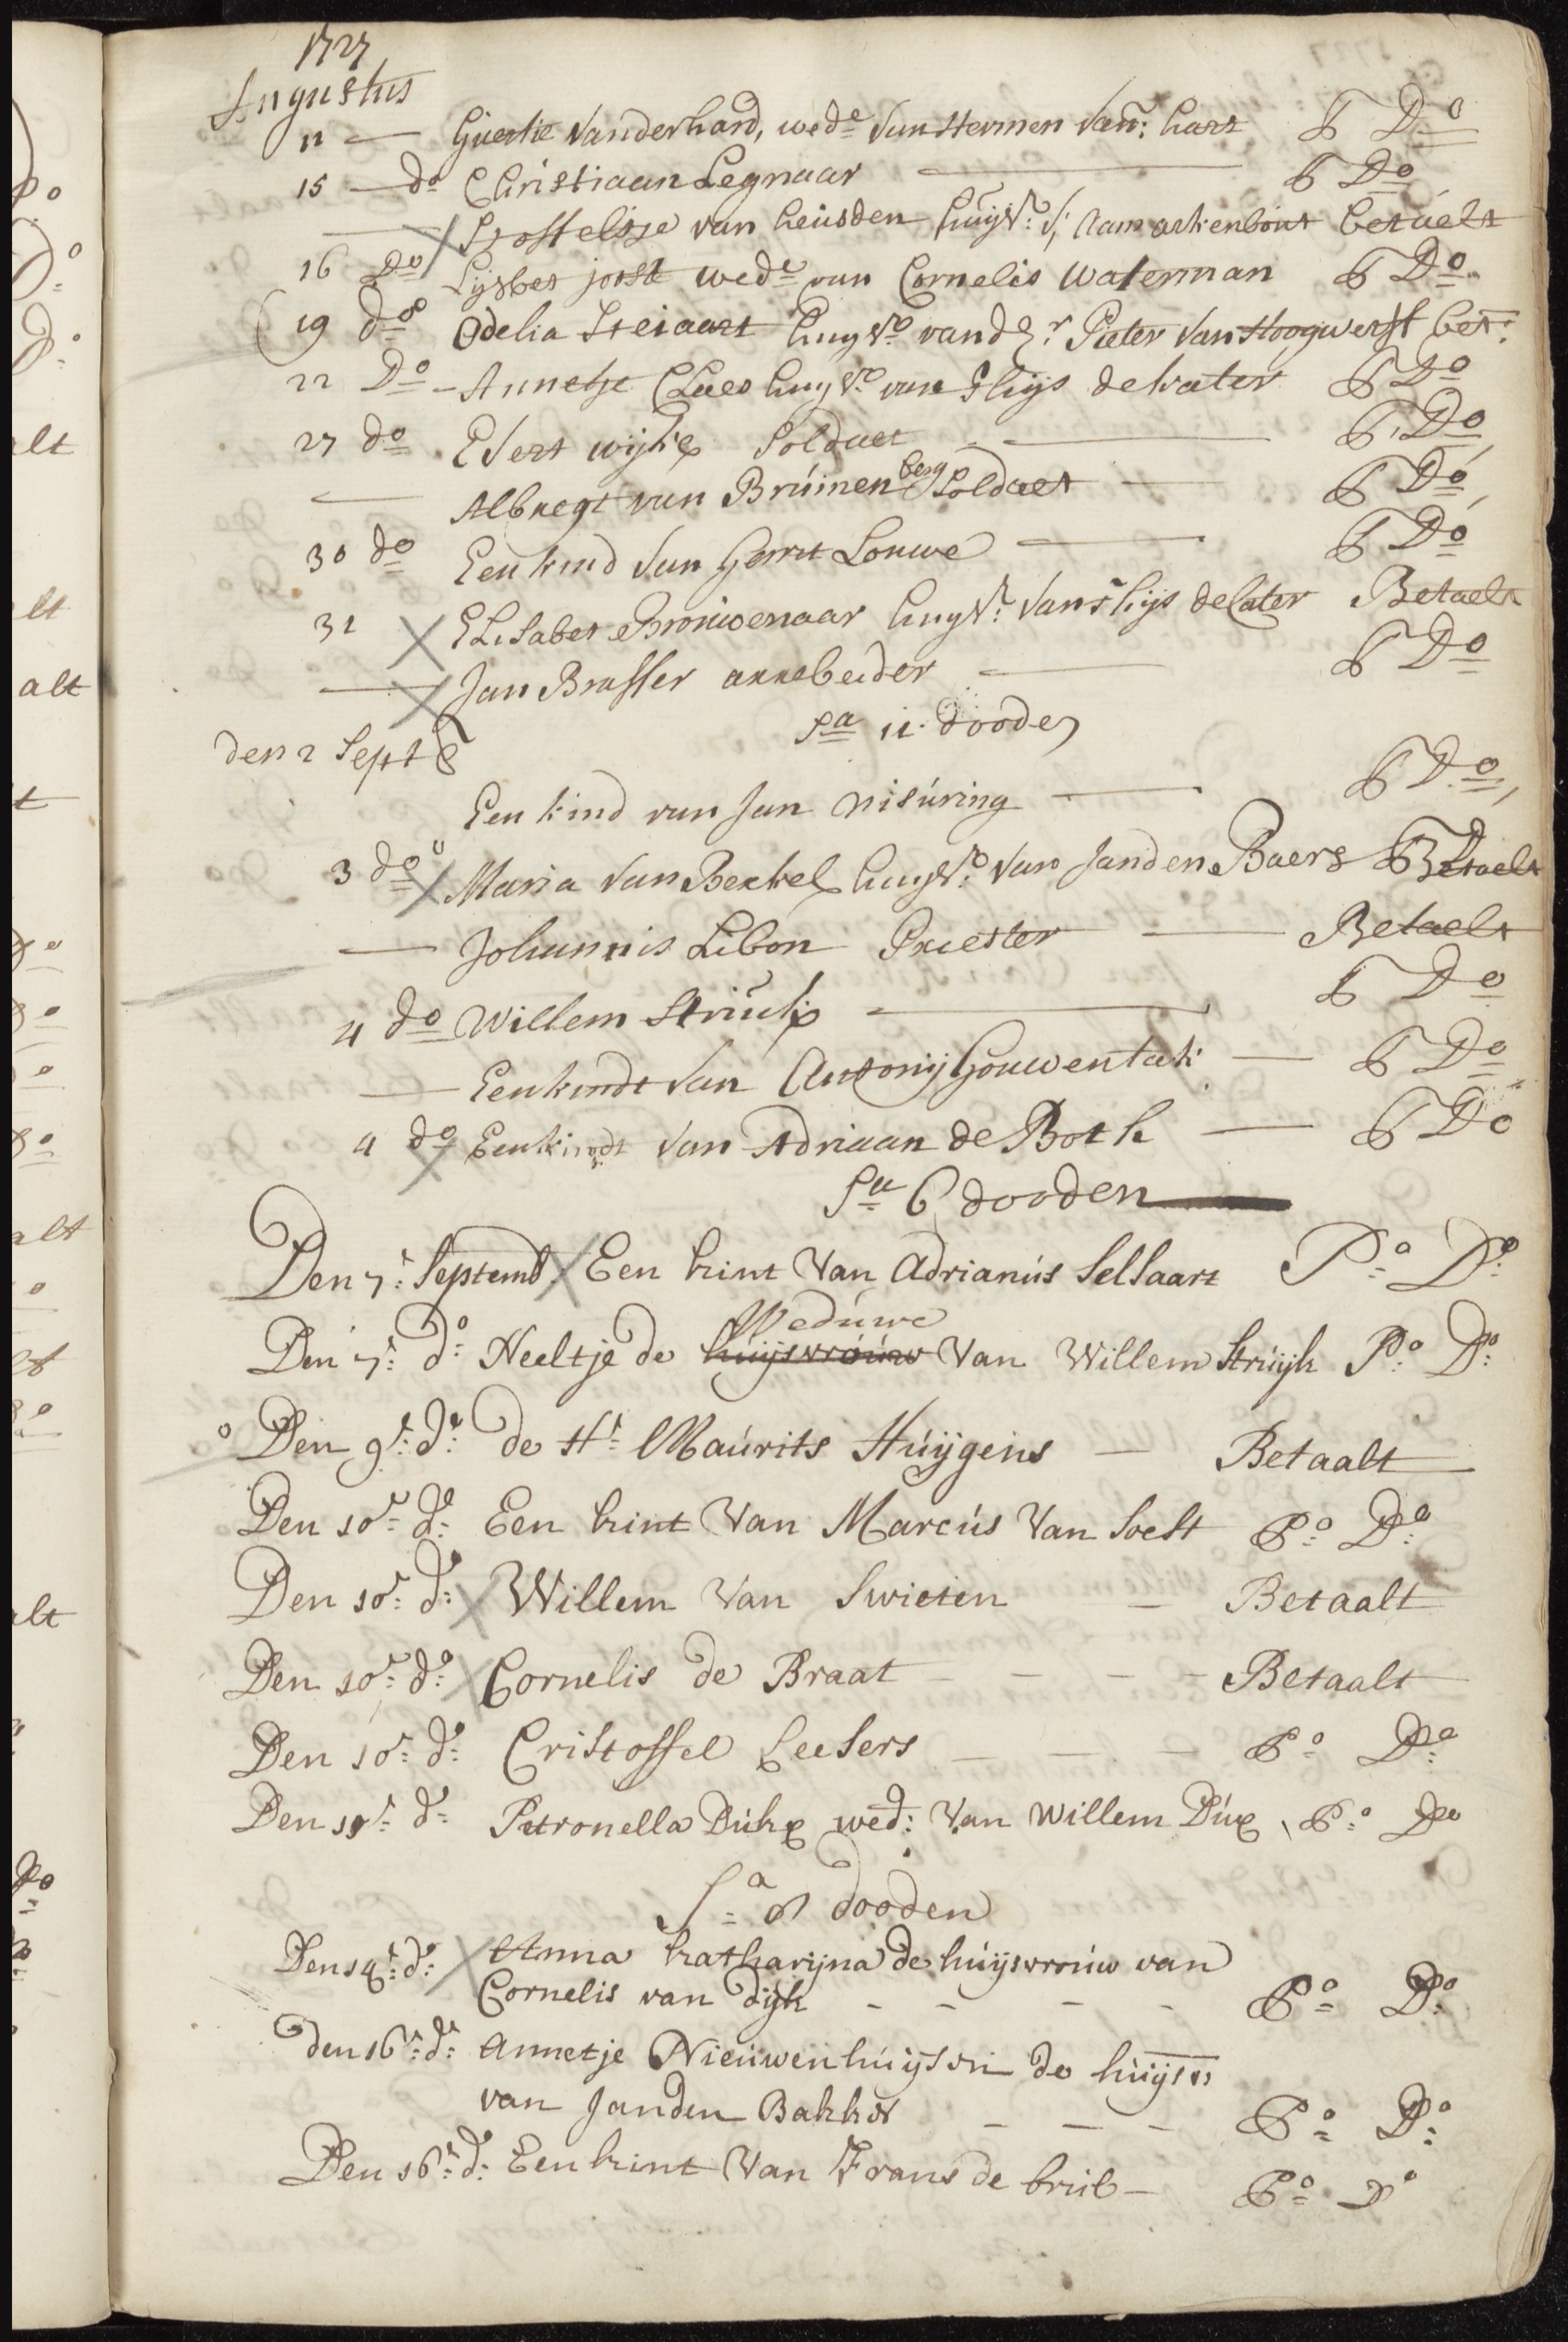 1727
Augustus
11 — Geertie vanderhard, wed:e van Hermen van: hart P Do
15 — do Christiaan Legnaar — P Do
— Stoffeltje van heusden huijsv: v: aam arkenbout betaelt
16 Do Lijsbet joste wed:e van Cornelis Waterman P Do
19 do Odelia Steiaart huijsvo van de Hr Pieter van Hoogwerft bet:
22 Do - Annetje Claes huijsvo van Thijs de kater P Do
27 do Evert wijkx Soldaet — P Do
— Albregt van Bruinenberg Soldaet — P Do
30 do Een kind van Gerrit Louwe — P Do
31 Elisabet Brouwenaar huijsv: van Thijs de later Betaelt
— Jan Brasser arrebeider — P Do
Sa 11 dooden
den 2 Sept
Een kind van Jan nisuring — P Do
3 do Maria van Berkel huijsvo van Jan den Baers Betaelt
— Johannis Libon Priester — Betaelt
4 do Willem Struikx — P Do
— Een kindt van Antonij Gouwentak — P Do
4 do Een kindt van Adriaan de Both — P Do
Sa 6 dooden
Den 7: Septemb: Een kint van Adrianus Selsaart Po: Do:
Weduwe
Den 7: do: Neeltje de huijsvrouw van Willem Struijk Po: Do:
Den 9e: do: de Hr: Maurits Huijgens — Betaalt
Den 10e: do: Een kint van Marcus van Soest Po: Do:
Den 10e: do: Willem van Swieten — Betaalt
Den 10e: do: Cornelis de Braat - - - Betaalt
Den 10e: do: Cristoffel Leesers - - - Po: Do:
Den 11e: do: Petronella Dukx wed: van Willem Dux Po: Do
Sa: 8 dooden
Den 14e: do: Anna katharijna de huijsvrouw van
Cornelis van dijk - - - - Po: Do:
den 16e: do: Annetje Nieuwenhuijsen de huijsv:
van Jan den Bakker - - - Po: Do:
Den 16e: do: Een kint van Frans de bruib — Po: Do